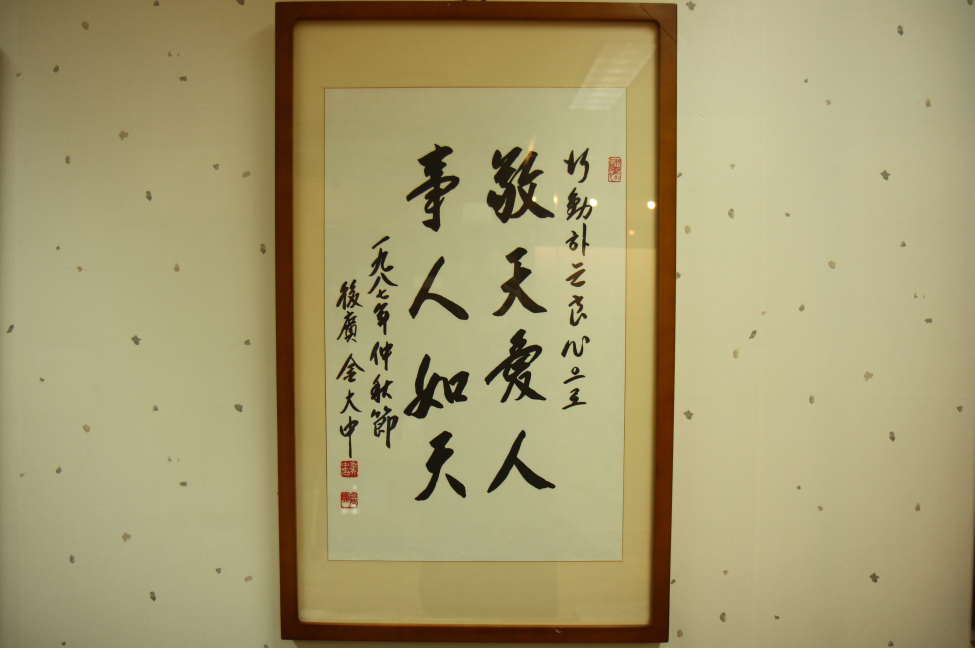 行動하는良心으로
敬天愛人
事人如天
一九八七年仲秋節
後廣金大中